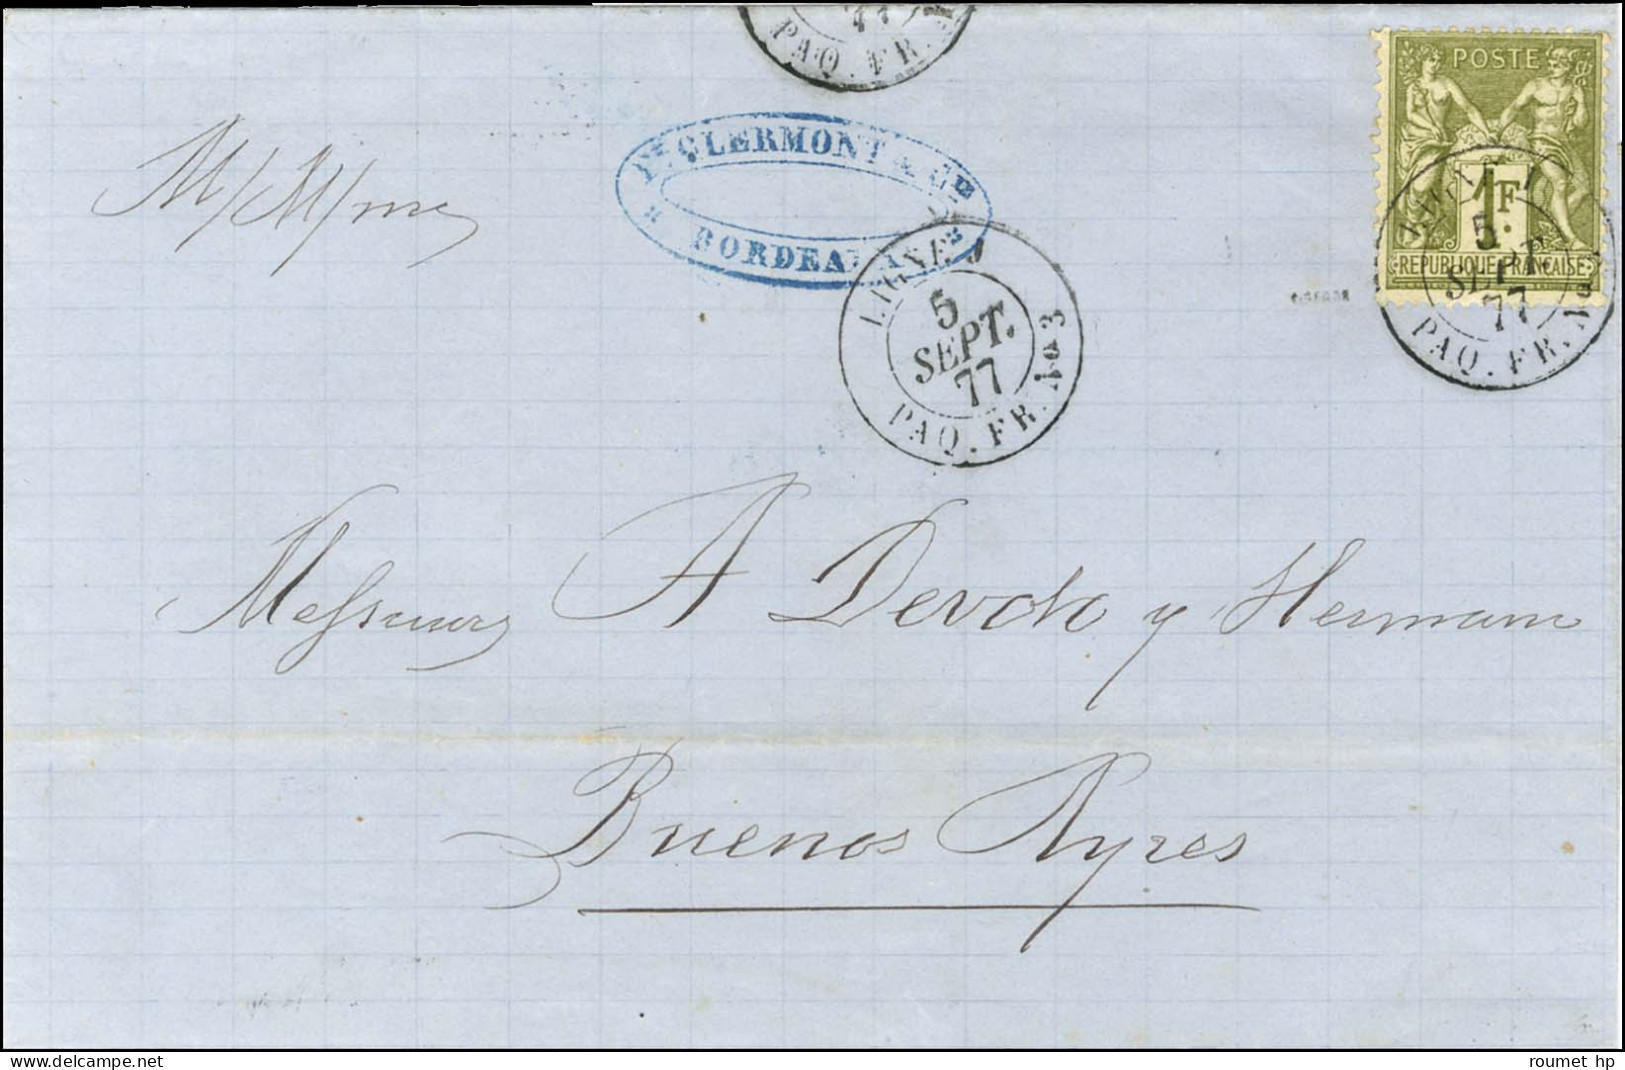 77
PAQ. FR.
CLERMONT & Cie
BORDEA
POSTE
1F
REPUBLIQUE FRANCAISE
LIGNE J
5
SEPT.
77
PAQ. FR. No 3
LIGNE J
5
SEPT.
77
PAQ. FR. No
Messieurs A Devoto y Hermano
Buenos Ayres
roumet hp